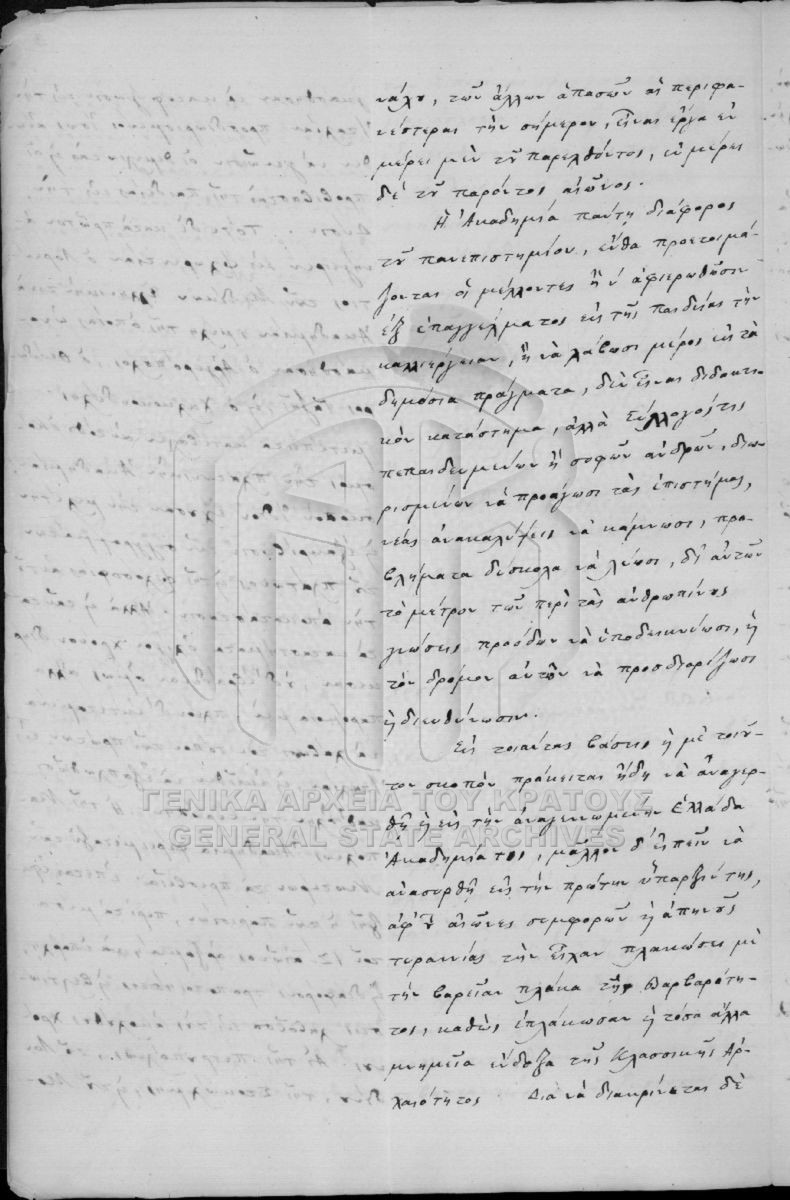 νάχυ, τῶν ἄλλων ἁπασῶν αἱ περιφα-
νέστεραι τὴν σήμερον, εἶναι ἔργα ἐν
μέρει μὲν τοῦ παρελθόντος, ἐν μέρει
δὲ τοῦ παρόντος αἰῶνος.
Ἡ Ἀκαδημία παντῃ διάφορος
τοῦ πανεπιστημίου, ἔνθα προετοιμά-
ζονται οἱ μέλλοντες ἢ ν' ἀφιερωθῶσιν
ἐξ ἐπαγγέλματος εἰς τῆς παιδείας τὴν
καλλιέργειαν, ἢ νὰ λάβωσι μέρος εἰς τὰ
δημόσια πράγματα, δὲν εἶναι διδακτι-
κὸν κατάστημα, ἀλλὰ Σύλλογός τις
πεπαιδευμένων ἢ σοφῶν ἀνδρῶν, διω-
ρισμένων νὰ προάγωσι τὰς ἐπιστήμας,
νέας ἀνακαλύψεις νὰ κάμνωσι, προ-
βλήματα δύσκολα νὰ λύωσι, δι' αὐτῶν
τὸ μέτρον τῶν περὶ τὰς ἀνθρωπίνους
γνώσεις προόδων νὰ ὑποδεικνύωσι, ἢ
τὸν δρόμον αὐτῶν νὰ προσδιορίζωσι
ἢ διευθύνωσιν.
Εἰς τοιαύτας βάσεις ἢ μὲ τοιοῦ-
τον σκοπὸν πρόκειται ἤδη νὰ ἀνεγερ-
θῇ ἢ εἰς τὴν ἀναγεννωμένην Ἑλλάδα
Ἀκαδημία τις, μᾶλλον δ' εἰπεῖν νὰ
ἀνασυρθῇ εἰς τὴν πρώτην ὕπαρξίν της,
ἀφ' οὗ αἰῶνες συμφορῶν ἢ ἀπηνοῦς
τυραννίας τὴν εἶχαν πλακώσει μὲ
τὴν βαρεῖαν πλάκα τῆς βαρβαρότη-
τος, καθὼς ἐπλάκωσαν ἢ τόσα ἄλλα
μνημεῖα ἔνδοξα τῆς Κλασσικῆς Ἀρ-
χαιότητος. Διὰ νὰ διακρίνεται δὲ
ΓΕΝΙΚΑ ΑΡΧΕΙΑ ΤΟΥ ΚΡΑΤΟΥΣ
GENERAL STATE ARCHIVES